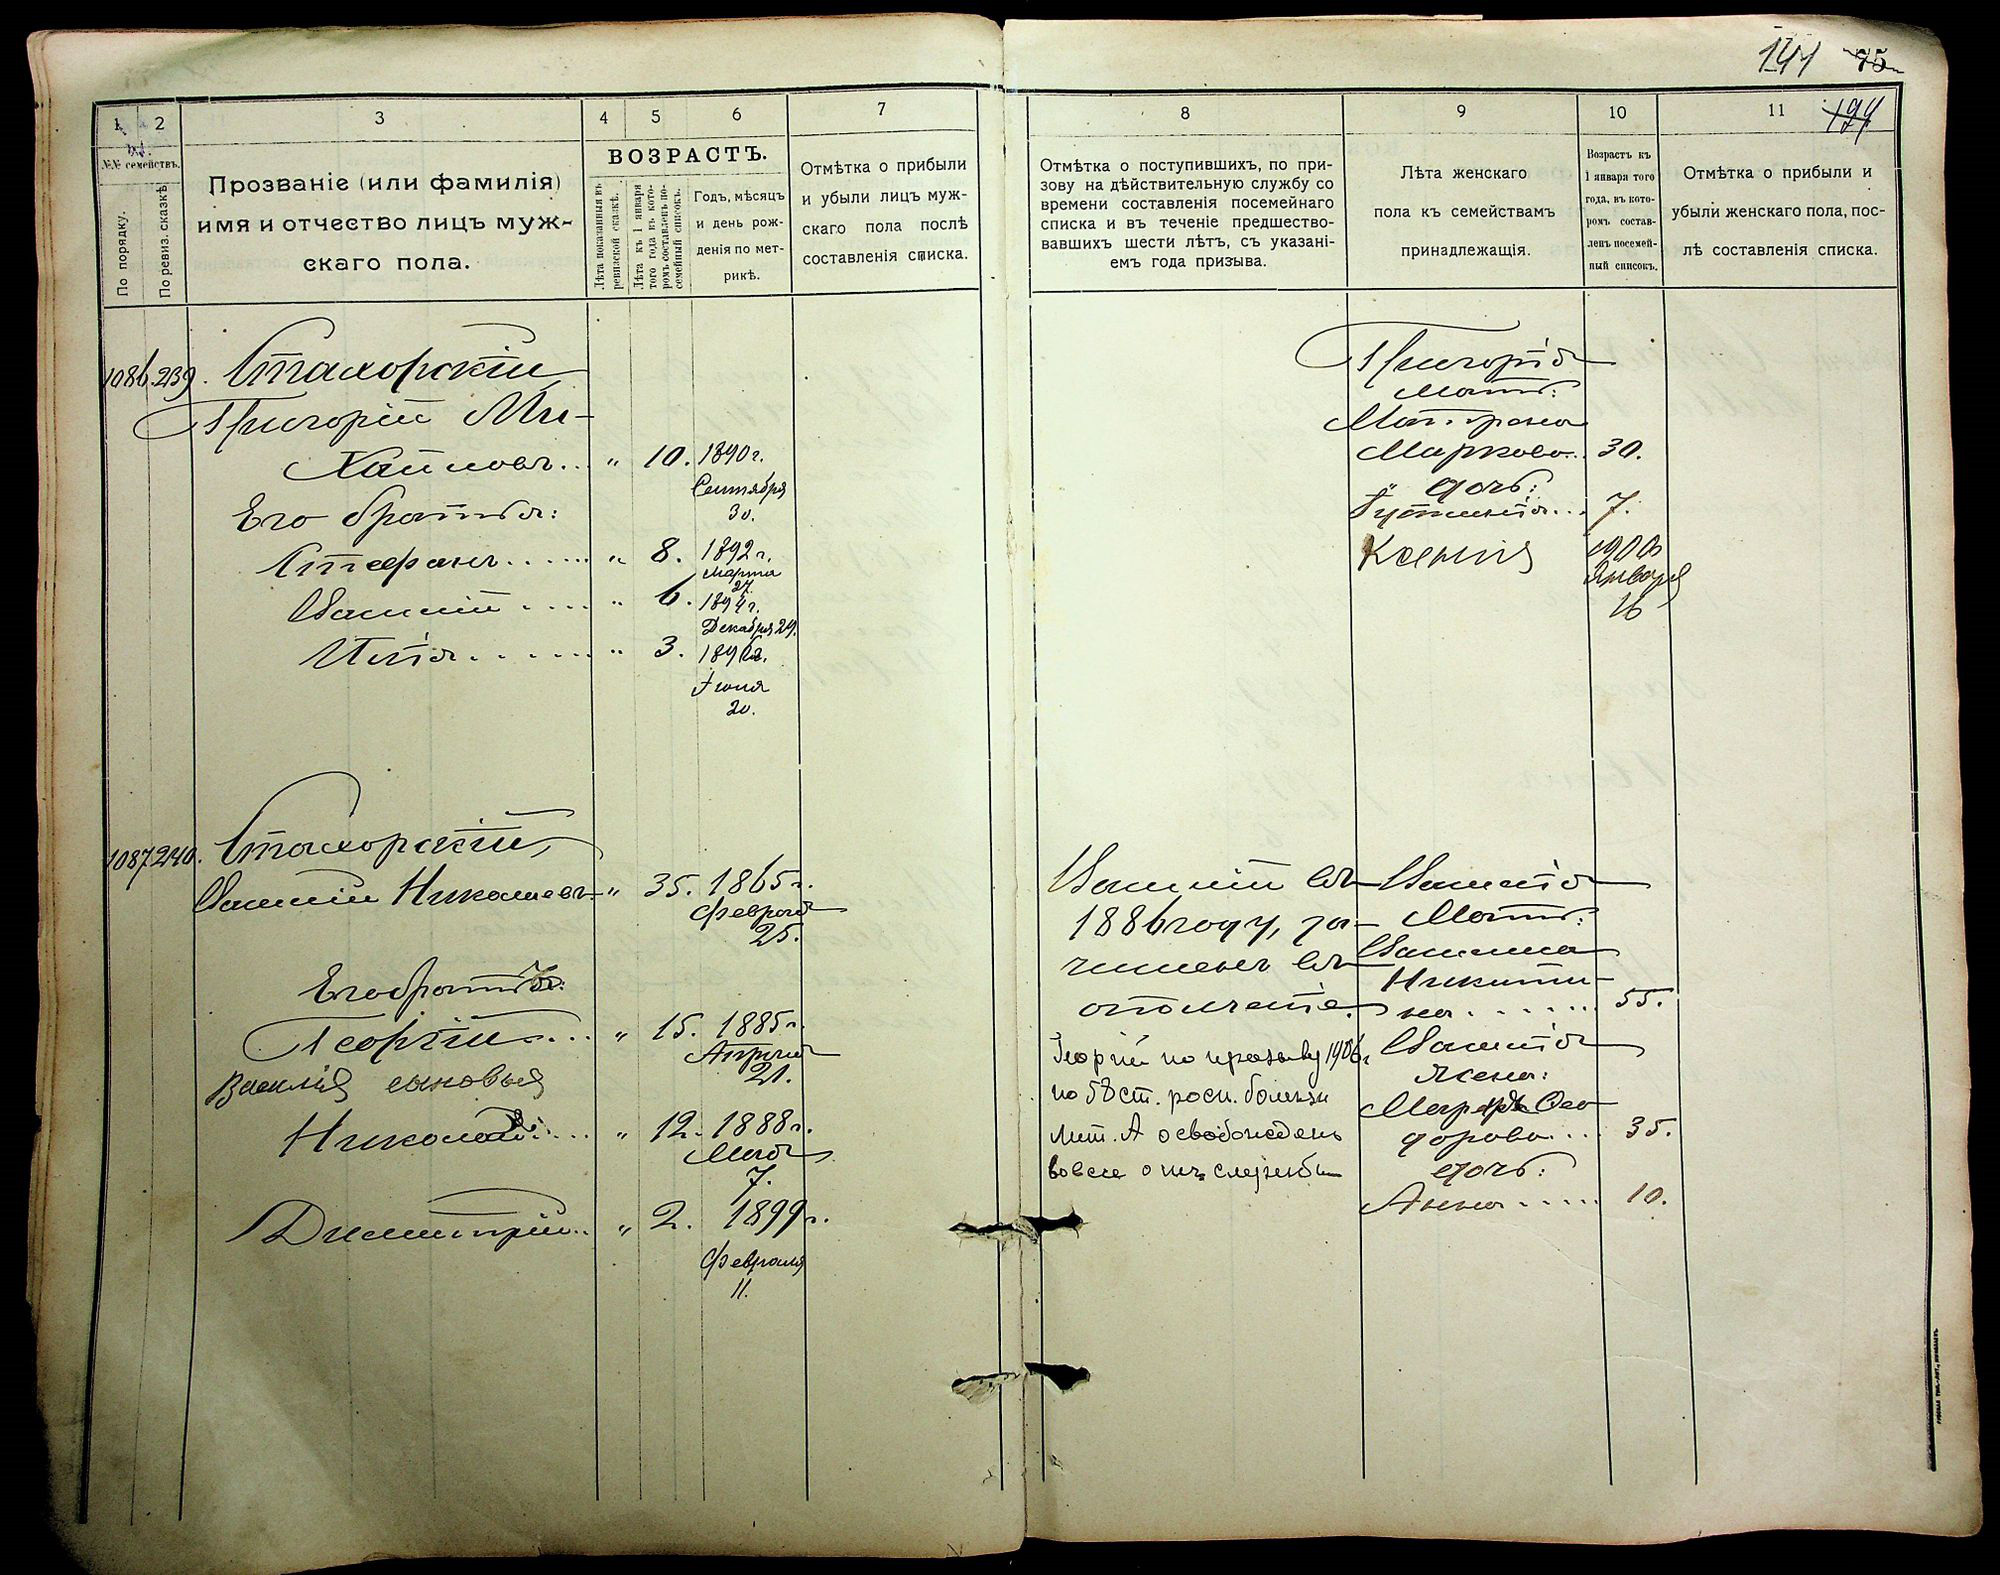 141 75
194
1
2
3
4
5
6
7
№№ семействъ.
По порядку.
По ревиз. сказкѣ.
Прозваніе (или фамилія)
имя и отчество лицъ муж-
скаго пола.
ВОЗРАСТЪ.
Лѣта показанныя въ
ревизской сказкѣ.
Лѣта къ 1 января
того года въ кото-
ромъ составленъ по-
семейный списокъ.
Годъ, мѣсяцъ
и день рож-
денія по мет-
рикѣ.
Отмѣтка о прибыли
и убыли лицъ муж-
скаго пола послѣ
составленія списка.
1086. 239. Стахорскій
Григорій Ми-
хайловъ... „ 10. 1890 г.
Сентября
30.
Его братья:
Стефанъ...... „ 8. 1892 г.
Марта
27.
Василій .... „ 6. 1894 г.
Декабря 29.
Илія....... „ 3.
Іюня
20.
1087. 240. Стахорскій,
Василій Николаевъ „ 35. 1865 г.
Февраля
25.
Его братья:
Георгій.... „ 15. 1885 г.
Апрѣля
21.
Василія сыновья
Николай.... „ 12. 1888 г.
Мая
7.
Димитрій.. „ 2. 1899 г.
Февраля
11.
8
9
10
11
Отмѣтка о поступившихъ, по при-
зову на дѣйствительную службу со
времени составленія посемейнаго
списка и въ теченіе предшество-
вавшихъ шести лѣтъ, съ указані-
емъ года призыва.
Лѣта женскаго
пола къ семействамъ
принадлежащія.
Возрастъ къ
1 января того
года, въ кото-
ромъ состав-
ленъ посемей-
ный списокъ.
Отмѣтка о прибыли и
убыли женскаго пола, пос-
лѣ составленія списка.
Григорія
мать:
Матрона
Маркова.. 30.
дочь:
Іустинія... 7.
Ксенія 1900
Января
16
Василій въ
1886 году, за-
численъ въ
ополченіе.
Георгій по призыву 1906 г
по 58 ст. росп. болѣзн
Лит. А освобожденъ
вовсе отъ службы
Василія
Мать:
Никити-
на....... 55.
Василія
жена:
Марѳа Ѳео
дорова... 35.
дочь:
Анна..... 10.